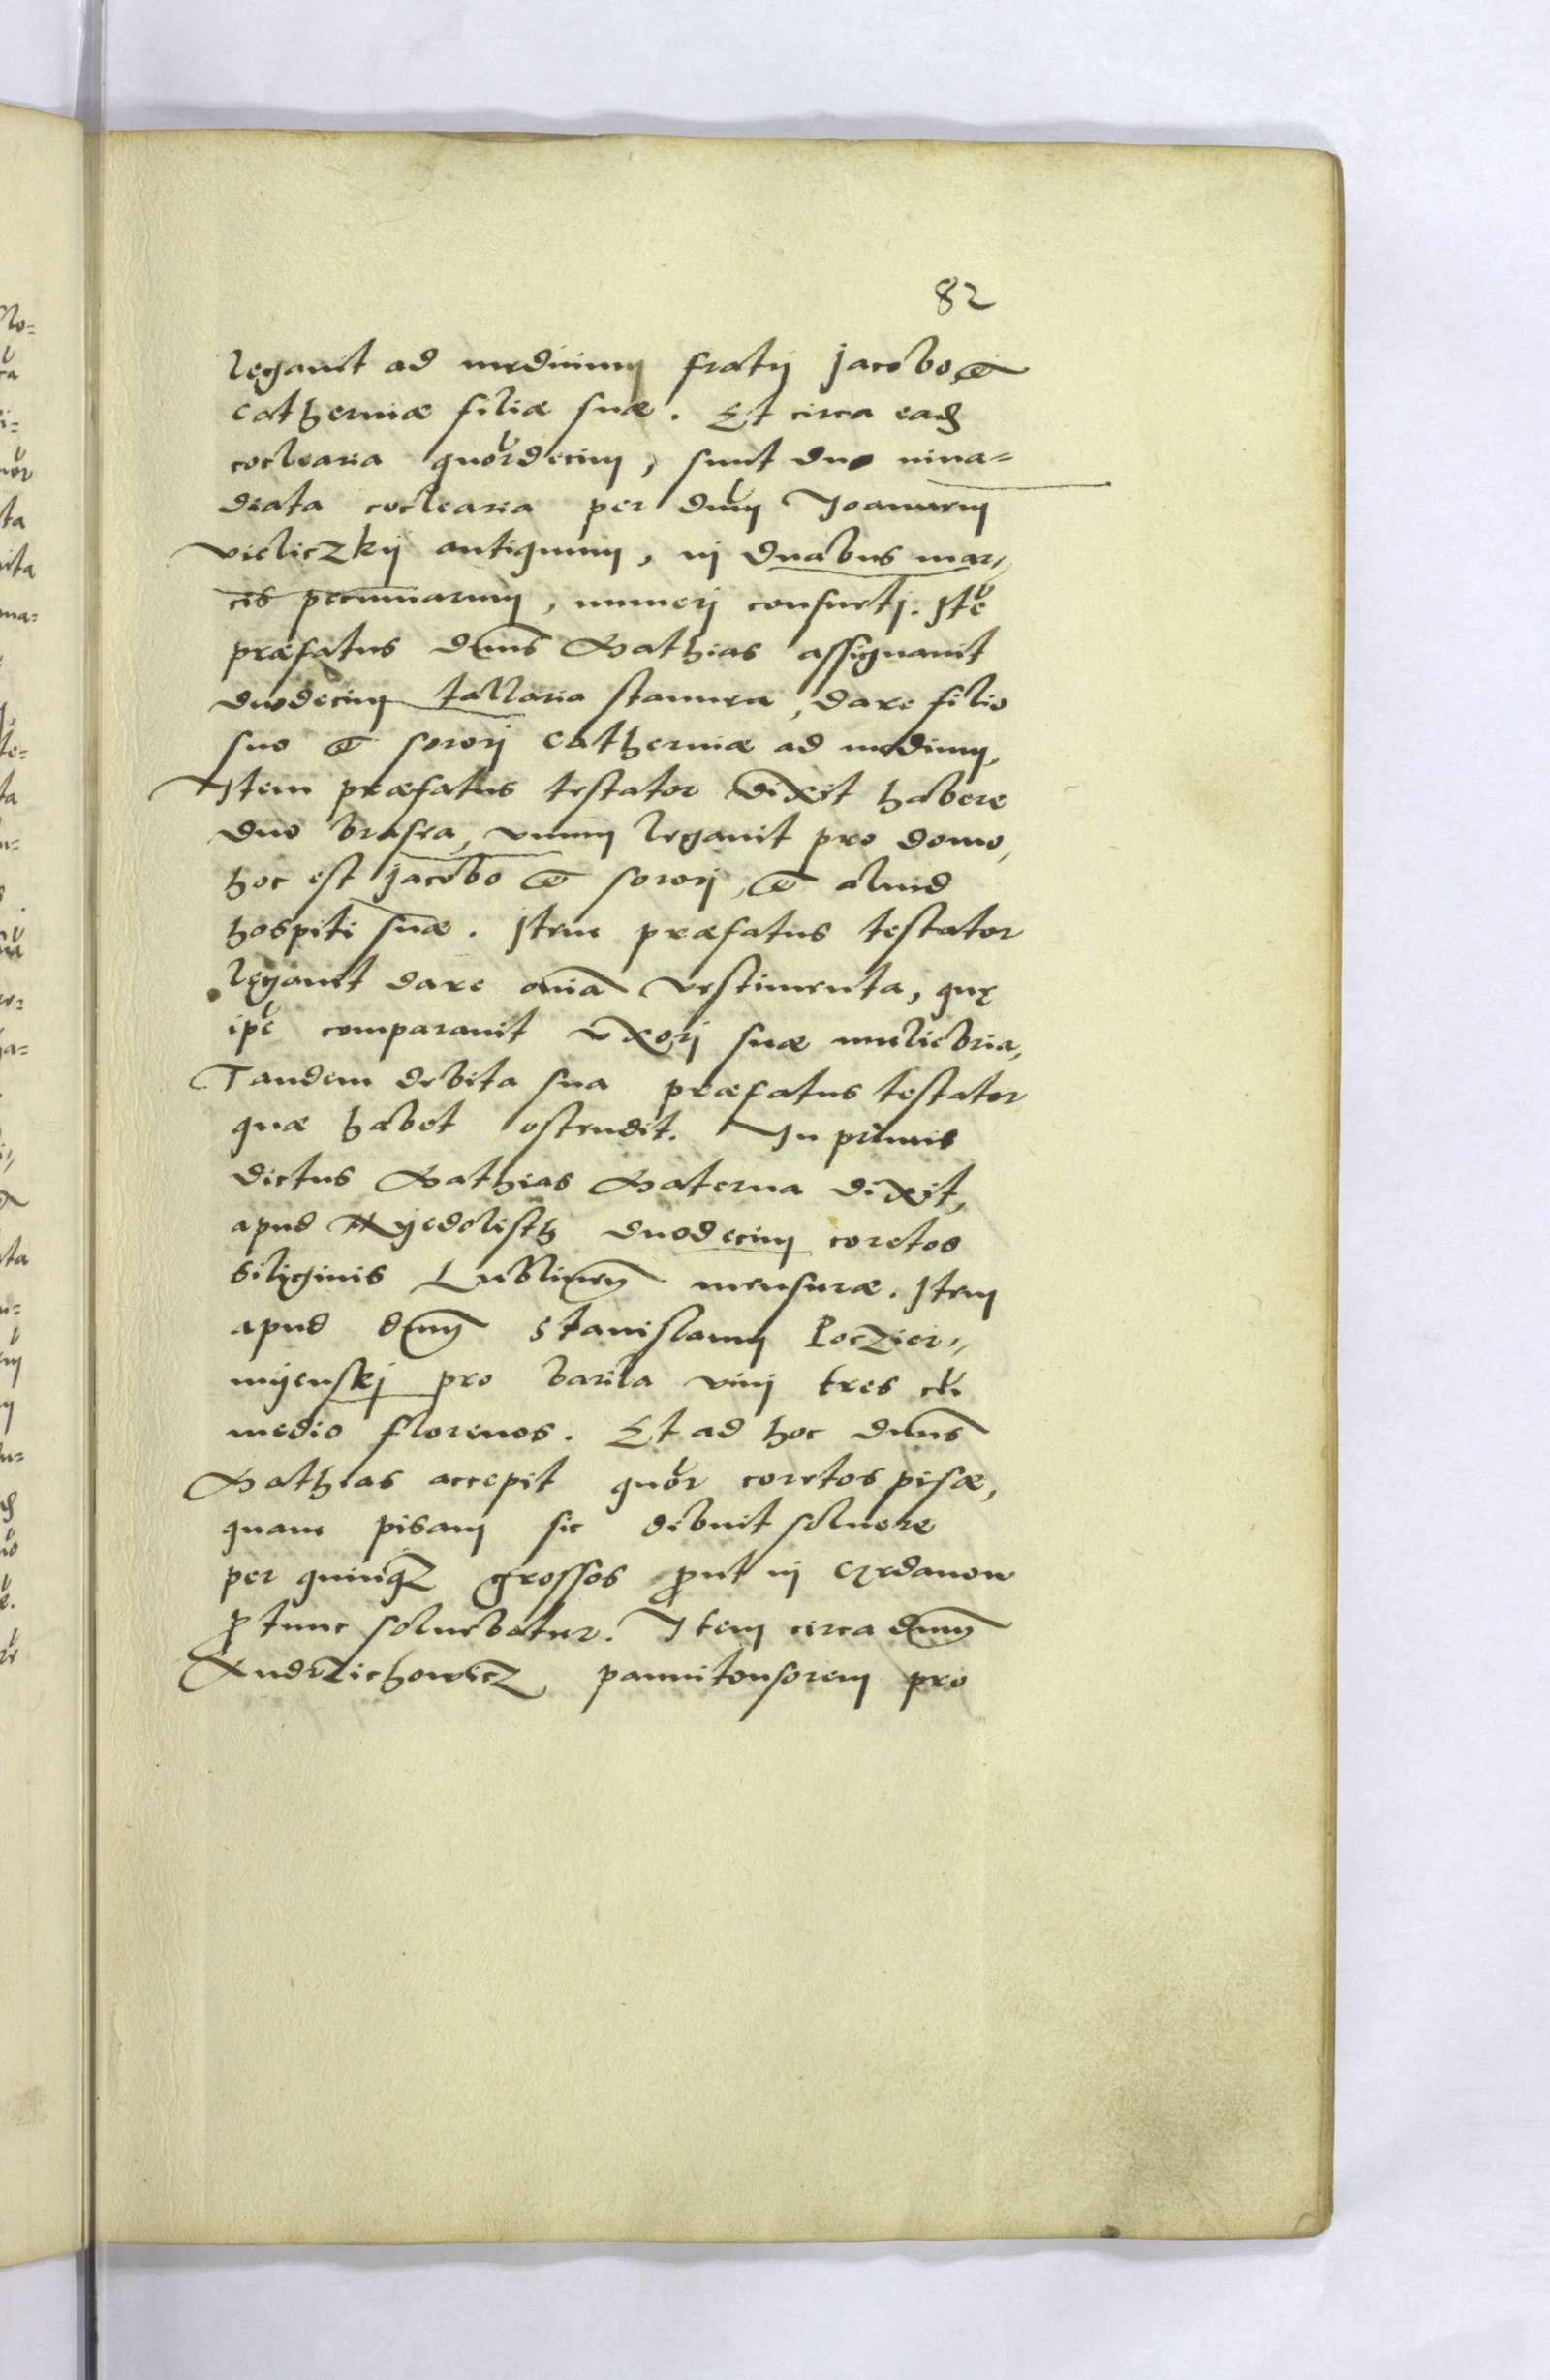 82
legauit ad medium fratri Jacobo &
Catherinæ filiæ suæ. Et circa ead
coclearia quordecim, sunt duo inua=
diata coclearia per dnm Joannem
vieliczkij antiquum, in duabus mar,,
cis pecuniarum, numeri consueti. Ite
præfatus dnus Mathias assignauit
duodecim tallaria stannea, dare filio
suo & sorori Catherinæ ad medium.
Item præfatus testator dixit habere
duo brasea, vnum legauit pro domo,
hoc est Jacobo & sorori, & aliud
hospiti suæ. Item præfatus testator
legauit dare oīa vestimenta, quę
ipe comparauit vxori suæ muliebria,
Tandem debita sua præfatus testator
quæ habet ostendit. In primis
dictus Mathias Materna dixit,
apud Nyedolisth duodecim coretos
siliginis Lublinen mensuræ. Item
apud dnm Stanislaum Poczier,,
nyenskj pro barila vini tres cu
medio florenos. Et ad hoc dnus
Mathias accepit quor coretos pisæ,
quam pisam sic debuit soluere
per quinqz grossos put in Czrdanow
p tunc soluebatur. Item circa dnm
Andrzichowicz pannitonsorem pro